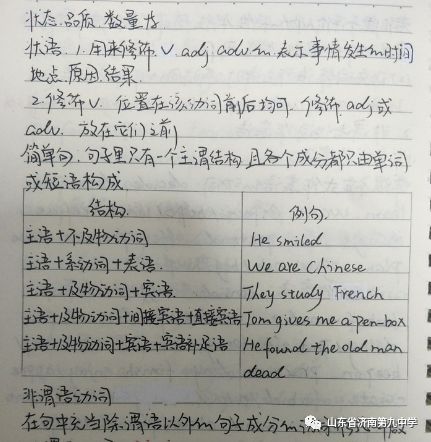 状态、品质、数量等
状语 1.用来修饰 v adj adv.m 表示事情发生m时间
地点 原因 结果
2.修饰 v. 位置在该动词前后均可. 修饰 adj或
adv. 放在它们之前
简单句. 句子里只有一个主谓结构 且各个成分都只由单词
或短语构成.
结构. 例句.
主语+不及物动词 He smiled
主语+系动词+表语. We are Chinese
主语+及物动词+宾语. They study French
主语+及物动词+间接宾语+直接宾语 Tom gives me a pen-box
主语+及物动词+宾语+宾语补足语 He found the old man
dead
非谓语动词
在句中充当除谓语以外m句子成分m
山东省济南第九中学